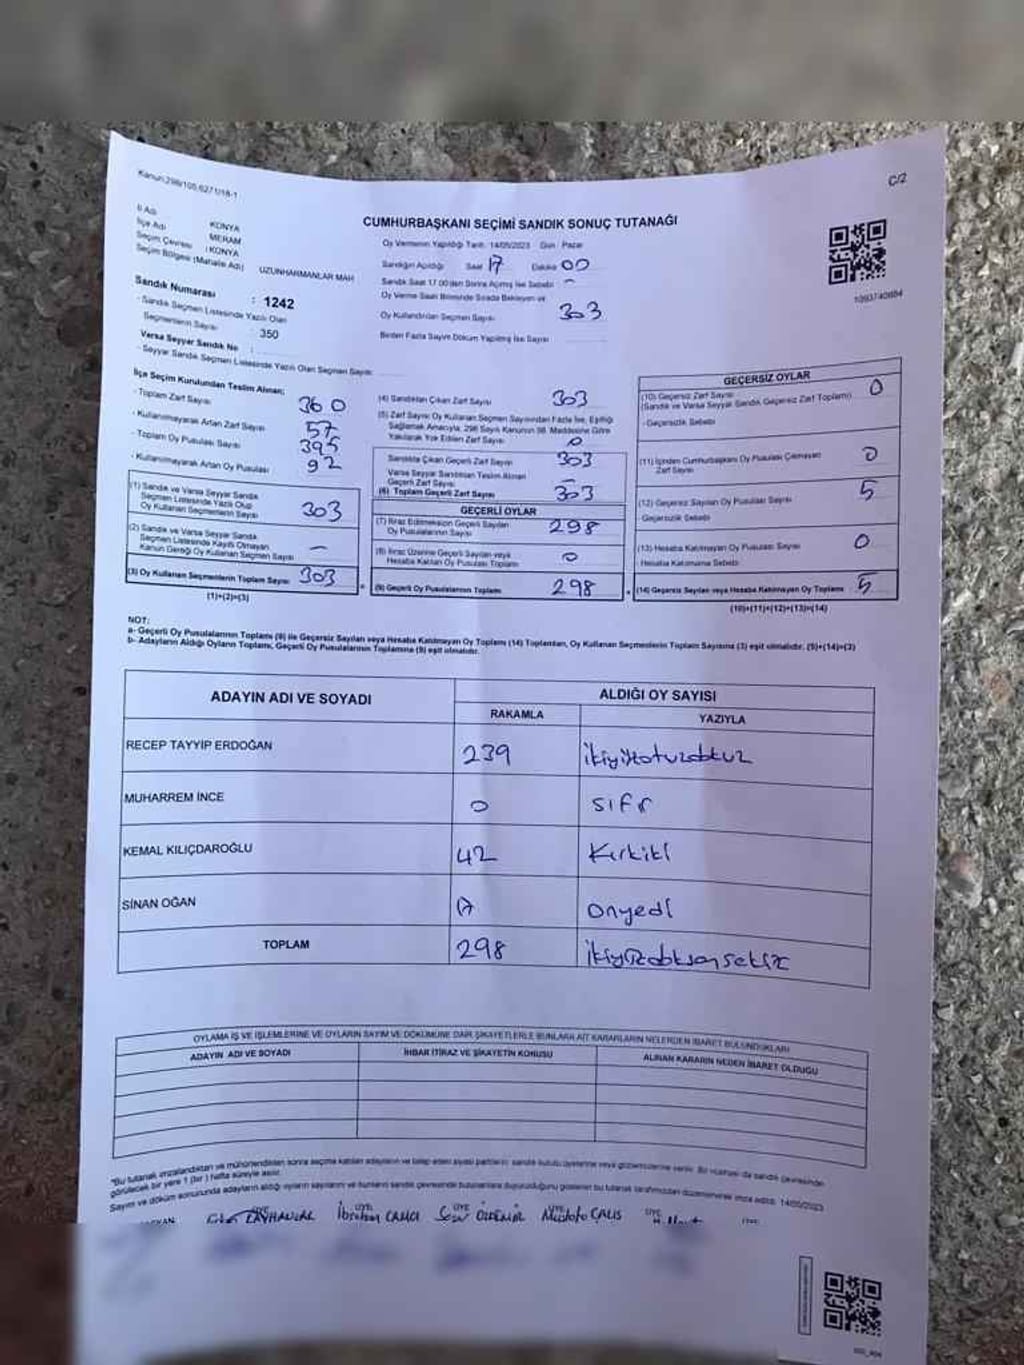 Kanun:298/105,6271/18-1
C/2
CUMHURBAŞKANI SEÇİMİ SANDIK SONUÇ TUTANAĞI
İl Adı : KONYA
İlçe Adı : MERAM
Seçim Çevresi : KONYA
Seçim Bölgesi (Mahalle Adı) : UZUNHARMANLAR MAH
Oy Vermenin Yapıldığı Tarih: 14/05/2023 Gün: Pazar
Sandığın Açıldığı Saat 17 Dakika 00
Sandık Saat 17.00'den Sonra Açılmış İse Sebebi: -
Oy Verme Saati Bitiminde Sırada Bekleyen ve
Oy Kullandırılan Seçmen Sayısı 303
Birden Fazla Sayım Döküm Yapılmış İse Sayısı
Sandık Numarası : 1242
- Sandık Seçmen Listesinde Yazılı Olan
Seçmenlerin Sayısı : 350
Varsa Seyyar Sandık No :
- Seyyar Sandık Seçmen Listesinde Yazılı Olan Seçmen Sayısı:
İlçe Seçim Kurulundan Teslim Alınan;
- Toplam Zarf Sayısı 360
- Kullanılmayarak Artan Zarf Sayısı 57
- Toplam Oy Pusulası Sayısı 395
- Kullanılmayarak Artan Oy Pusulası 92
(1) Sandık ve Varsa Seyyar Sandık
Seçmen Listesinde Yazılı Olup
Oy Kullanan Seçmenlerin Sayısı 303
(2) Sandık ve Varsa Seyyar Sandık
Seçmen Listesinde Kayıtlı Olmayan
Kanun Gereği Oy Kullanan Seçmen Sayısı -
(3) Oy Kullanan Seçmenlerin Toplam Sayısı 303
(1)+(2)=(3)
(4) Sandıktan Çıkan Zarf Sayısı 303
(5) Zarf Sayısı Oy Kullanan Seçmen Sayısından Fazla İse, Eşitliği
Sağlamak Amacıyla, 298 Sayılı Kanunun 98. Maddesine Göre
Yakılarak Yok Edilen Zarf Sayısı 0
Sandıkta Çıkan Geçerli Zarf Sayısı 303
Varsa Seyyar Sandıktan Teslim Alınan
Geçerli Zarf Sayısı -
(6) Toplam Geçerli Zarf Sayısı 303
GEÇERLİ OYLAR
(7) İtiraz Edilmeksizin Geçerli Sayılan
Oy Pusulalarının Sayısı 298
(8) İtiraz Üzerine Geçerli Sayılan veya
Hesaba Katılan Oy Pusulaları Toplamı 0
(9) Geçerli Oy Pusulalarının Toplamı 298
GEÇERSİZ OYLAR
(10) Geçersiz Zarf Sayısı
(Sandık ve Varsa Seyyar Sandık Geçersiz Zarf Toplamı) 0
- Geçersizlik Sebebi
(11) İçinden Cumhurbaşkanı Oy Pusulası Çıkmayan
Zarf Sayısı 0
(12) Geçersiz Sayılan Oy Pusulası Sayısı 5
- Geçersizlik Sebebi
(13) Hesaba Katılmayan Oy Pusulası Sayısı 0
Hesaba Katılmama Sebebi
(14) Geçersiz Sayılan veya Hesaba Katılmayan Oy Toplamı 5
(10)+(11)+(12)+(13)=(14)
NOT:
a- Geçerli Oy Pusulalarının Toplamı (9) ile Geçersiz Sayılan veya Hesaba Katılmayan Oy Toplamı (14) Toplamları, Oy Kullanan Seçmenlerin Toplam Sayısına (3) eşit olmalıdır. (9)+(14)=(3)
b- Adayların Aldığı Oyların Toplamı, Geçerli Oy Pusulalarının Toplamına (9) eşit olmalıdır.
ADAYIN ADI VE SOYADI ALDIĞI OY SAYISI
RAKAMLA YAZIYLA
RECEP TAYYİP ERDOĞAN 239 ikiyüzotuzdokuz
MUHARREM İNCE 0 sıfır
KEMAL KILIÇDAROĞLU 42 Kırkiki
SİNAN OĞAN 17 onyedi
TOPLAM 298 ikiyüzdoksansekiz
OYLAMA İŞ VE İŞLEMLERİNE VE OYLARIN SAYIM VE DÖKÜMÜNE DAİR ŞİKAYETLERLE BUNLARA AİT KARARLARIN NELERDEN İBARET BULUNDUKLARI
ADAYIN ADI VE SOYADI İHBAR İTİRAZ VE ŞİKAYETİN KONUSU ALINAN KARARIN NEDEN İBARET OLDUĞU
*Bu tutanak imzalandıktan ve mühürlendikten sonra seçime katılan adayların ve talep eden siyasi partilerin sandık kurulu üyelerine veya gözlemcilerine verilir. Bir nüshası da sandık çevresinde
görülecek bir yere 1 (bir) hafta süreyle asılır.
Sayım ve döküm sonucunda adayların aldığı oyların sayılarını ve bunların sandık çevresinde bulunanlara duyurulduğunu gösteren bu tutanak tarafımızdan düzenlenerek imza edildi. 14/05/2023
ÜYE ÜYE ÜYE ÜYE
İbrahim CAMCI ÖZDEMİR Mustafa ÇALIŞ